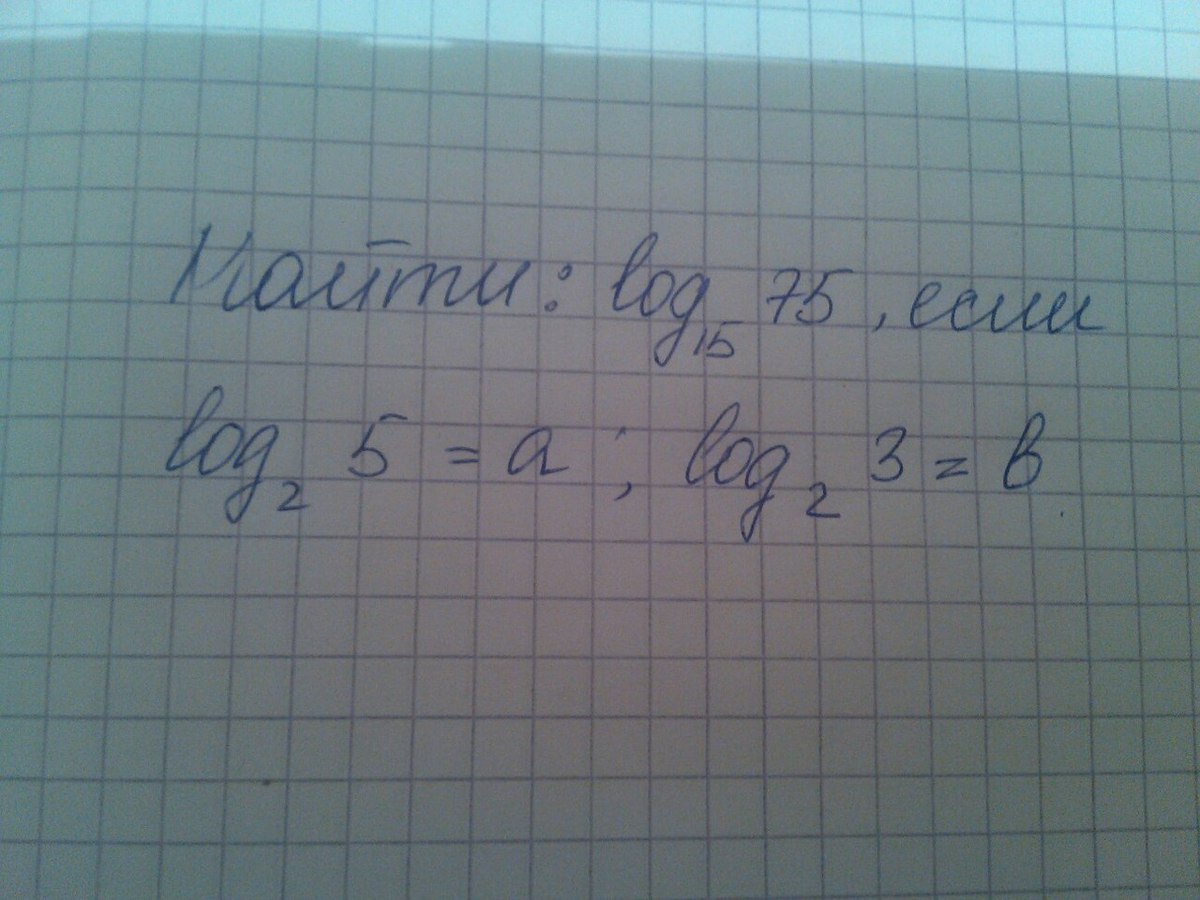 Найти: log₁₅ 75, если
log₂ 5 = a; log₂ 3 = b